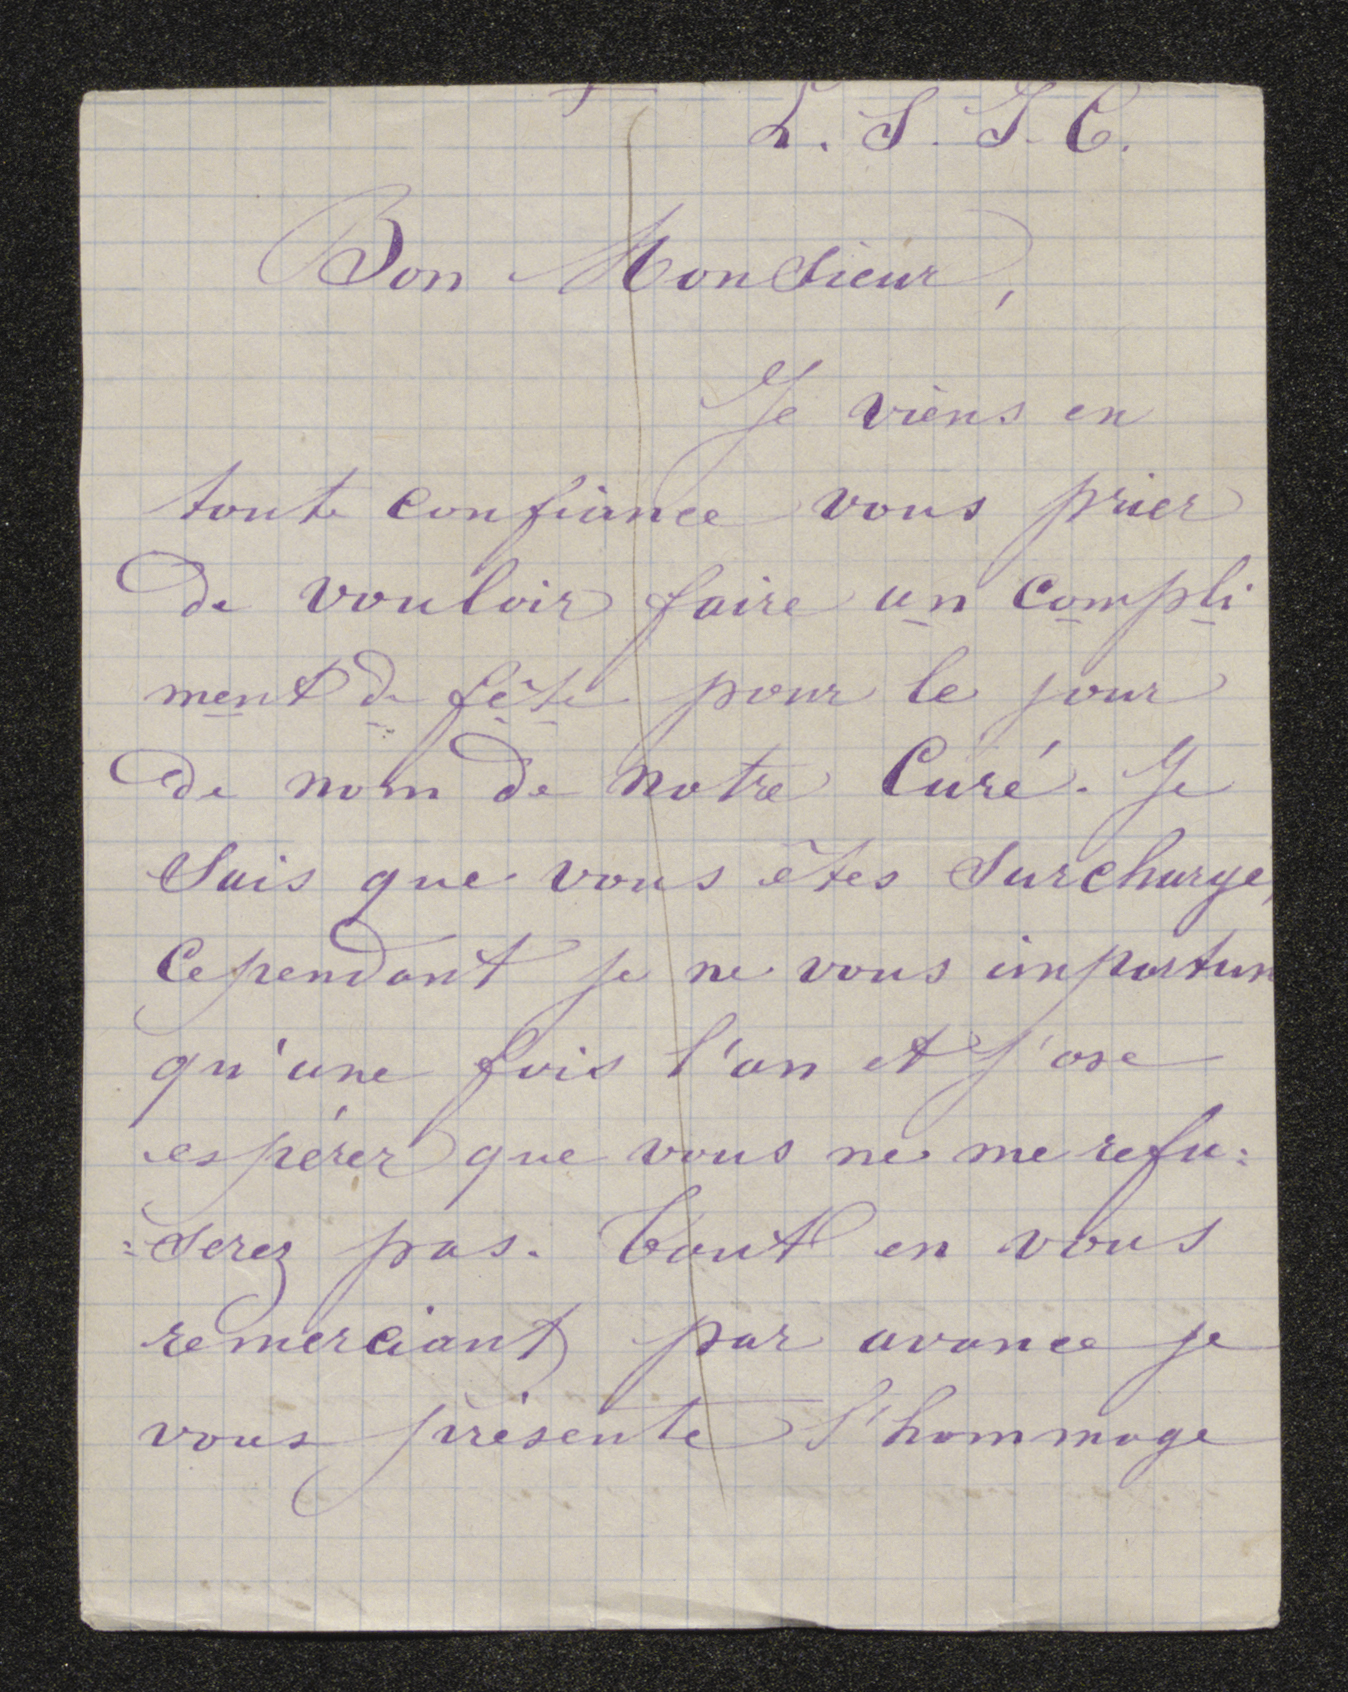 L. S. J. C.
Bon Monsieur,
Je viens en
toute confiance vous prier
de vouloir faire un compli
ment de fête pour le jour
de nom de notre Curé. Je
sais que vous êtes surchargé,
cependant je ne vous importun
qu'une fois l'an et j'ose
espérer que vous ne me refu=
=serez pas. Tout en vous
remerciant par avance je
vous présente l'hommage